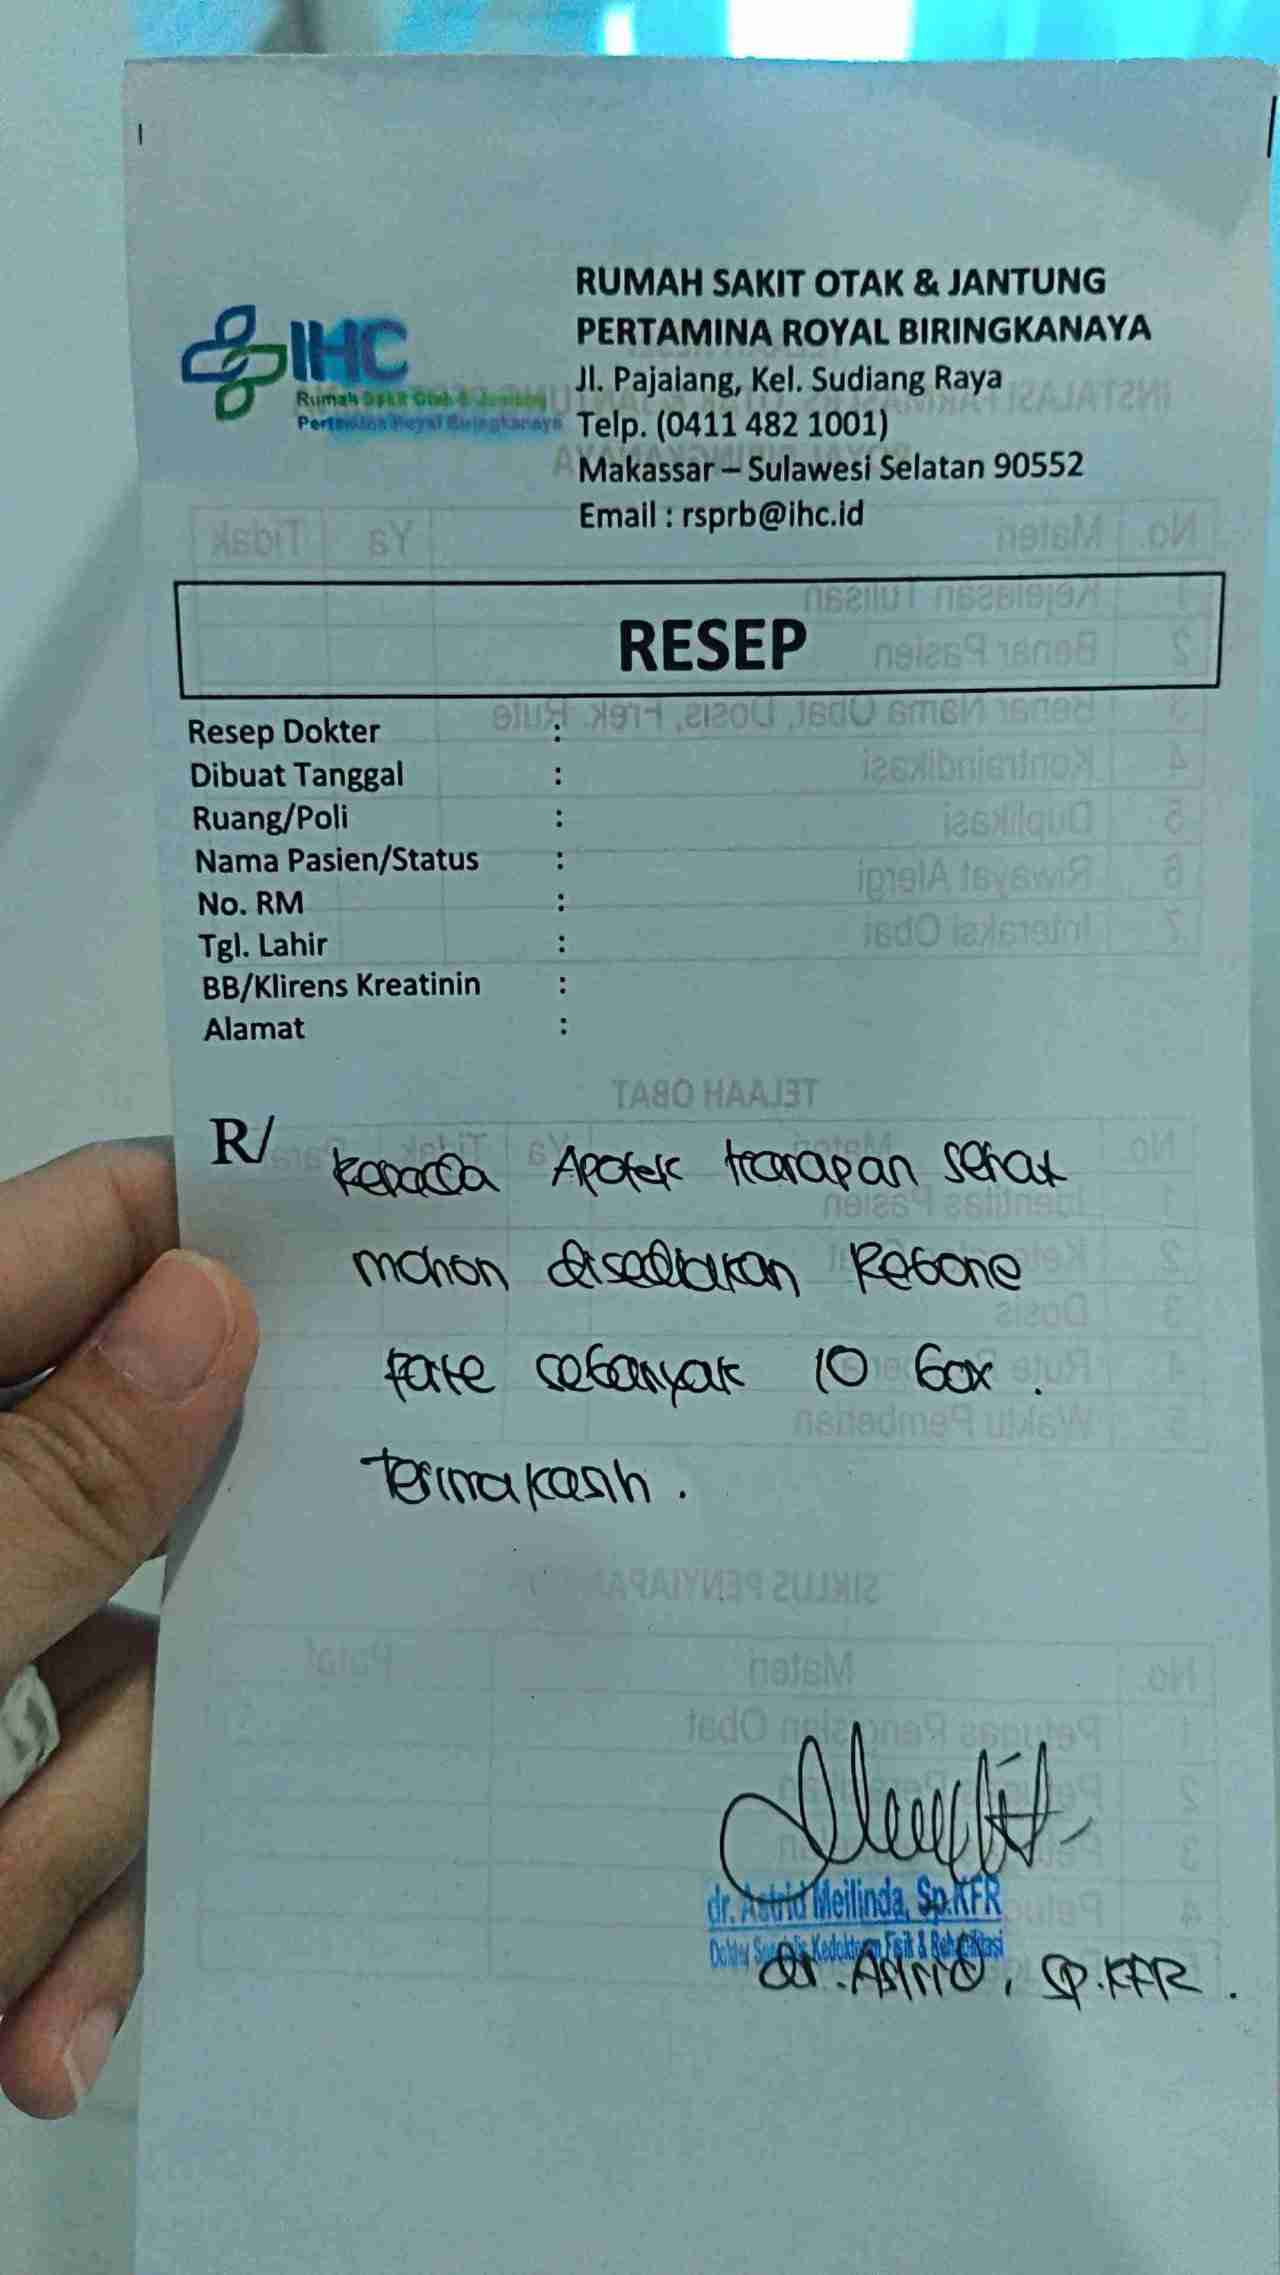 IHC
Rumah Sakit Otak & Jantung
Pertamina Royal Biringkanaya
RUMAH SAKIT OTAK & JANTUNG
PERTAMINA ROYAL BIRINGKANAYA
Jl. Pajaiang, Kel. Sudiang Raya
Telp. (0411 482 1001)
Makassar – Sulawesi Selatan 90552
Email : rsprb@ihc.id
RESEP
Resep Dokter :
Dibuat Tanggal :
Ruang/Poli :
Nama Pasien/Status :
No. RM :
Tgl. Lahir :
BB/Klirens Kreatinin :
Alamat :
R/
Kepada Apotek Harapan Sehat
mohon disediakan Rebone
forte sebanyak 10 box.
Terimakasih.
dr. Astrid Meilinda, Sp.KFR
Dokter Spesialis Kedokteran Fisik & Rehabilitasi
dr. Astrid, Sp.KFR.